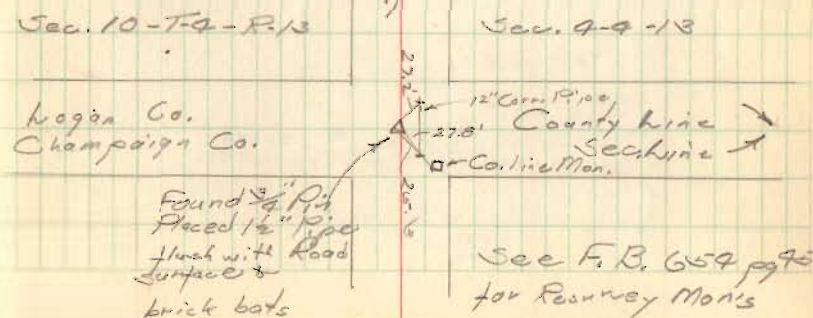 Sec. 10-T-4-R-13
Sec. 4-4-13
27.2'
12" Corr. Pipe
Logan Co.
Champaign Co.
27.8'
County Line
Sec. Line
Co. line Mon.
26.16
Found 3/4" Pin
Placed 1½" Pipe
flush with Road
surface &
brick bats
See F.B. 654 pg 45
for Mon's